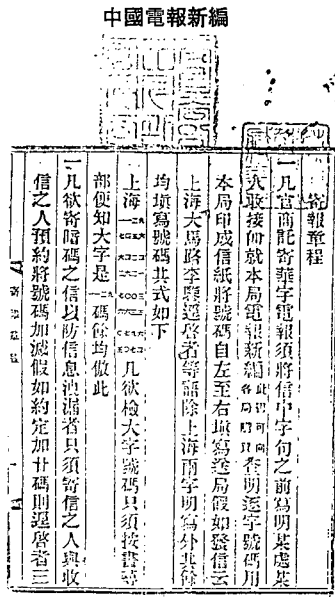 中國電報新編
寄報章程
一凡官商託寄華字電報須將信中字句之前寫明某處某
人取接卽就本局電報新編此書可向各局購買查明逐字號碼用
本局印成信紙將號碼自左至右填寫送局假如發信云
上海大馬路李逕啓者等語除上海兩字明寫外其餘
均填寫號碼其式如下
上海 凡欲檢大字號碼只須按書尋
部便知大字是碼餘均倣此
一凡欲寄暗碼之信以防信息洩漏者只須寄信之人與收
信之人預約將號碼加減假如約定加廿碼則逕啓者三